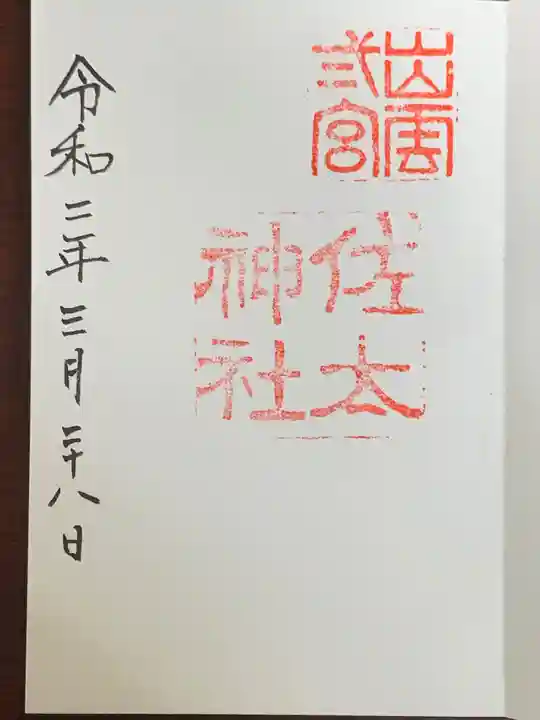 出雲
弍宮
佐太
神社
令和二年三月二十八日